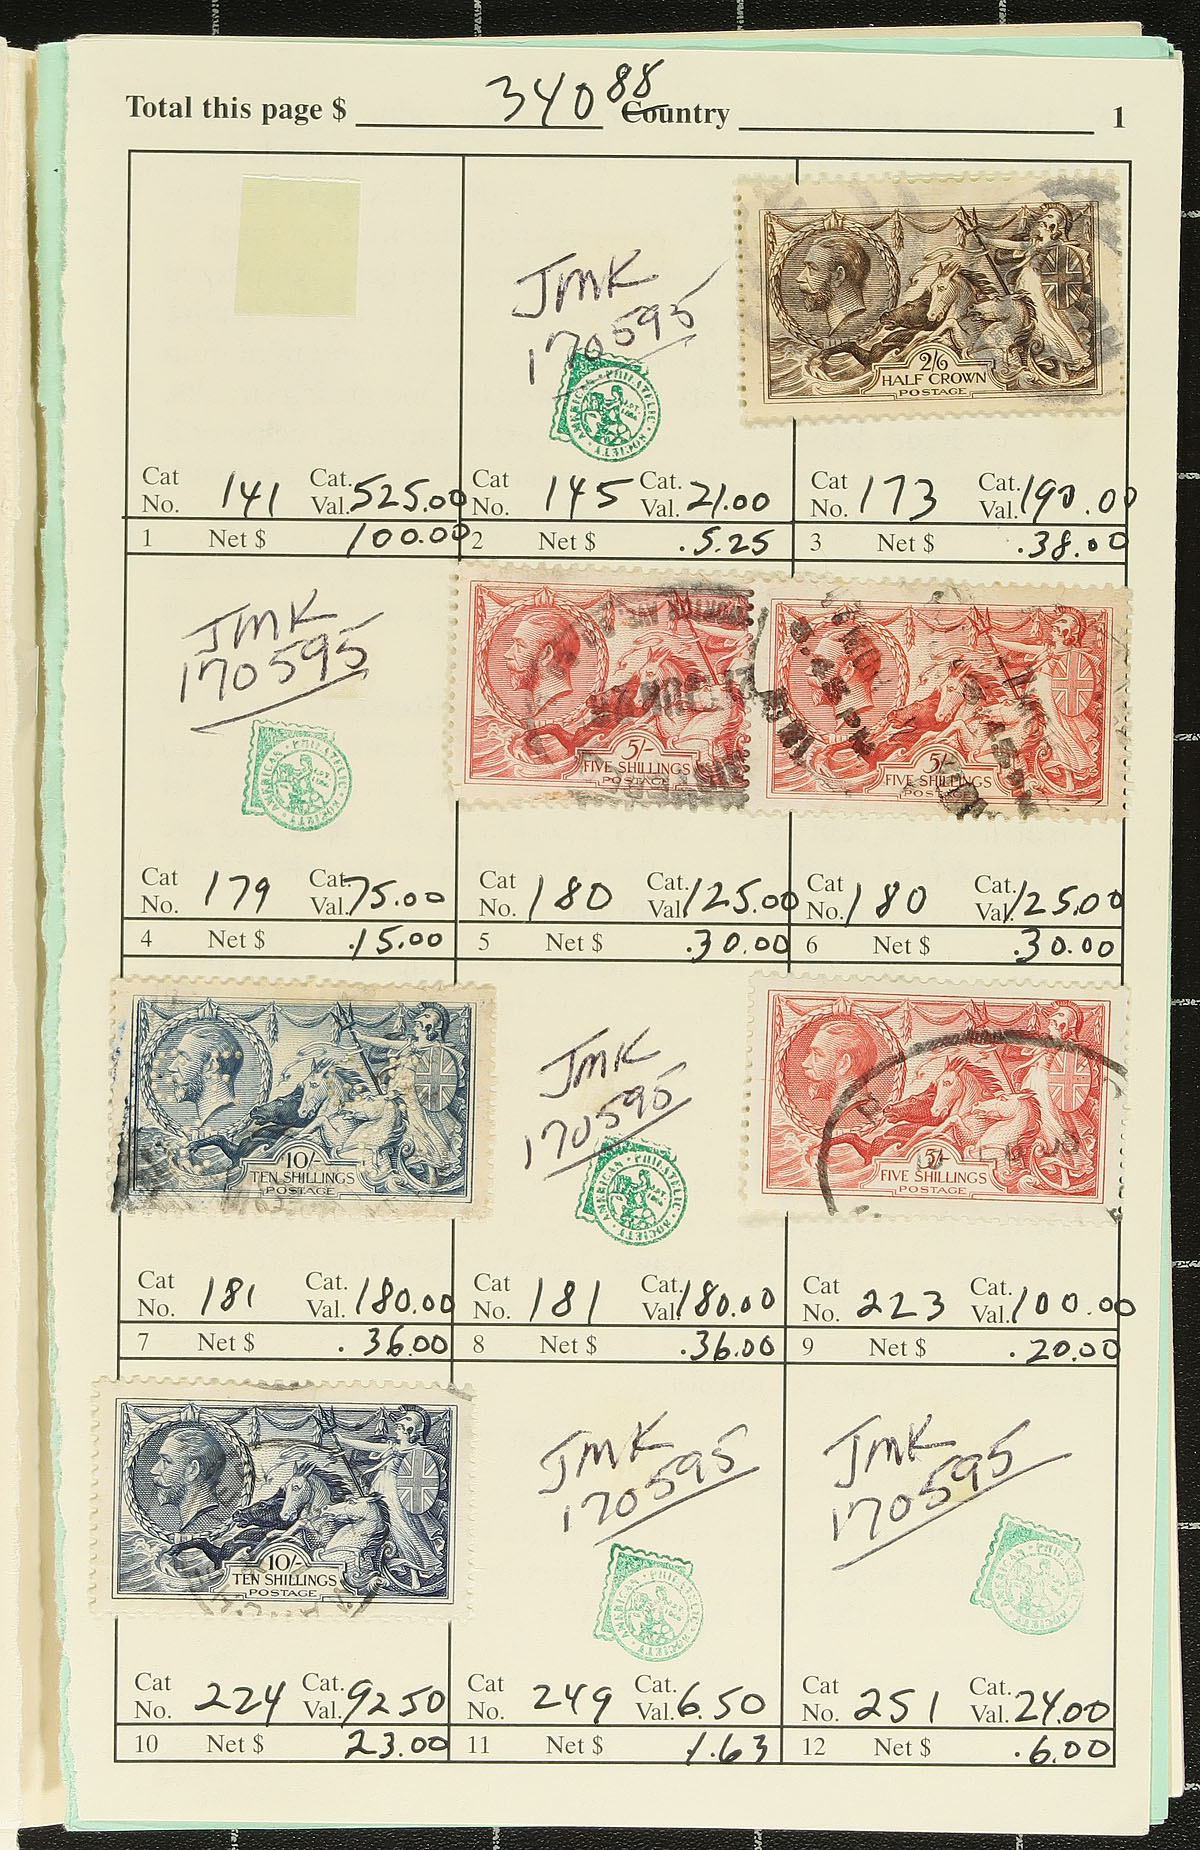 Total this page $ 340 88 Country 1
JMK
170595
AMERICAN PHILATELIC SOCIETY
2/6
HALF CROWN
POSTAGE
Cat No. 141 Cat. Val. 525.00
Cat No. 145 Cat. Val. 21.00
Cat No. 173 Cat. Val. 190.00
1 Net $ 100.00
2 Net $ .5.25
3 Net $ .38.00
JMK
170595
AMERICAN PHILATELIC SOCIETY
5/-
FIVE SHILLINGS
POSTAGE
5/-
FIVE SHILLINGS
POSTAGE
Cat No. 179 Cat. Val. 75.00
Cat No. 180 Cat. Val. 125.00
Cat No. 180 Cat. Val. 125.00
4 Net $ .15.00
5 Net $ .30.00
6 Net $ .30.00
10/-
TEN SHILLINGS
POSTAGE
JMK
170595
AMERICAN PHILATELIC SOCIETY
5/-
FIVE SHILLINGS
POSTAGE
Cat No. 181 Cat. Val. 180.00
Cat No. 181 Cat. Val. 180.00
Cat No. 223 Cat. Val. 100.00
7 Net $ .36.00
8 Net $ .36.00
9 Net $ .20.00
10/-
TEN SHILLINGS
POSTAGE
JMK
170595
AMERICAN PHILATELIC SOCIETY
JMK
170595
AMERICAN PHILATELIC SOCIETY
Cat No. 224 Cat. Val. 92 50
Cat No. 249 Cat. Val. 6.50
Cat No. 251 Cat. Val. 24.00
10 Net $ 23.00
11 Net $ 1.63
12 Net $ .6.00